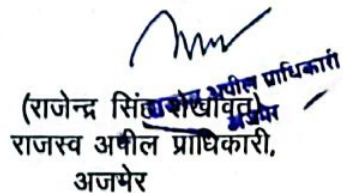 (राजेन्द्र सिंह शेखावत)
राजस्व अपील प्राधिकारी
अजमेर
राजस्व अपील प्राधिकारी,
अजमेर